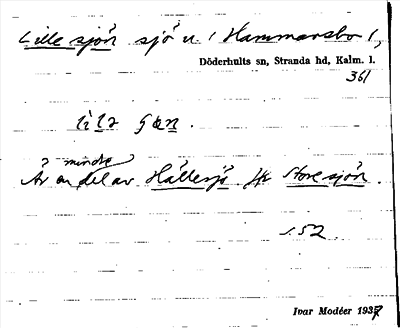 Lille sjön sjö u. i Hammarsbo 1,
Döderhults sn, Stranda hd, Kalm. l.
361
lila
Är en mindre del av Hällesjö jfr Store sjön.
s. 52.
Ivar Modéer 1937